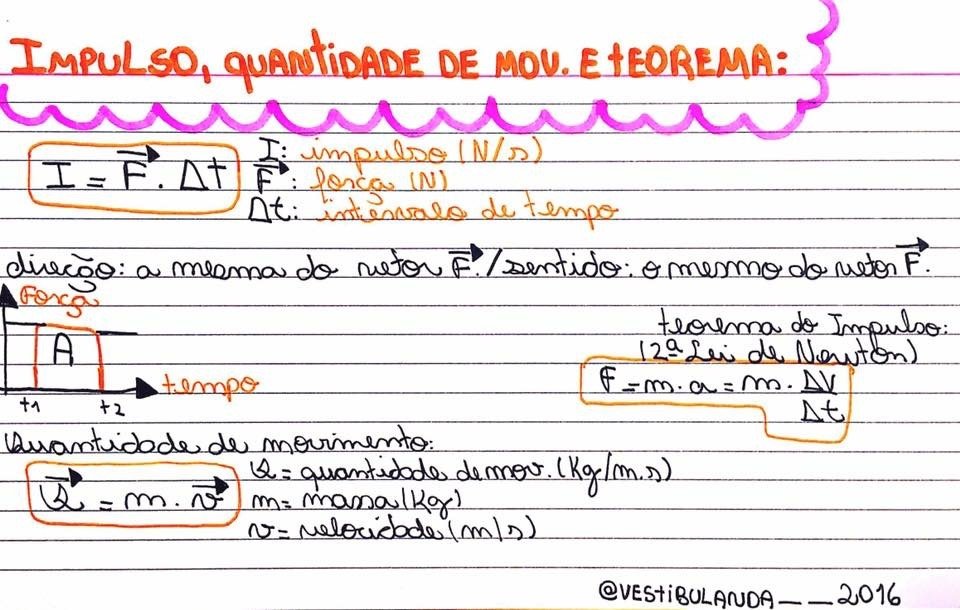 IMPULSO, QUANTIDADE DE MOV. E TEOREMA:
I = F⃗ . Δt
I: impulso (N/s)
F⃗: força (N)
Δt: intervalo de tempo
direção: a mesma do vetor F⃗. / sentido: o mesmo do vetor F⃗.
Força
A
tempo
t1 t2
teorema do Impulso:
(2ª Lei de Newton)
F = m . a = m . ΔV
Δt
Quantidade de movimento:
Q⃗ = m . v⃗
Q = quantidade de mov. (Kg/m.s)
m = massa (Kg)
v = velocidade (m/s)
@VESTIBULANDA__2016